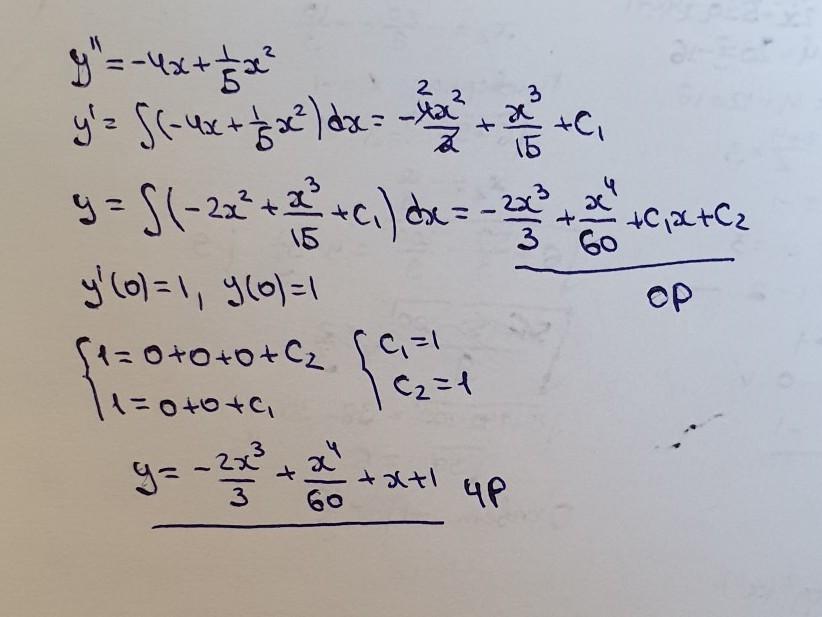 y'' = -4x + 1/5 x²
y' = ∫(-4x + 1/5 x²)dx = -4x²/2 2 + x³/15 + C₁
y = ∫(-2x² + x³/15 + C₁)dx = -2x³/3 + x⁴/60 + C₁x + C₂
ОР
y'(0)=1, y(0)=1
{1=0+0+0+C₂ {C₁=1
1=0+0+C₁ C₂=1
y = -2x³/3 + x⁴/60 + x+1 ЧР